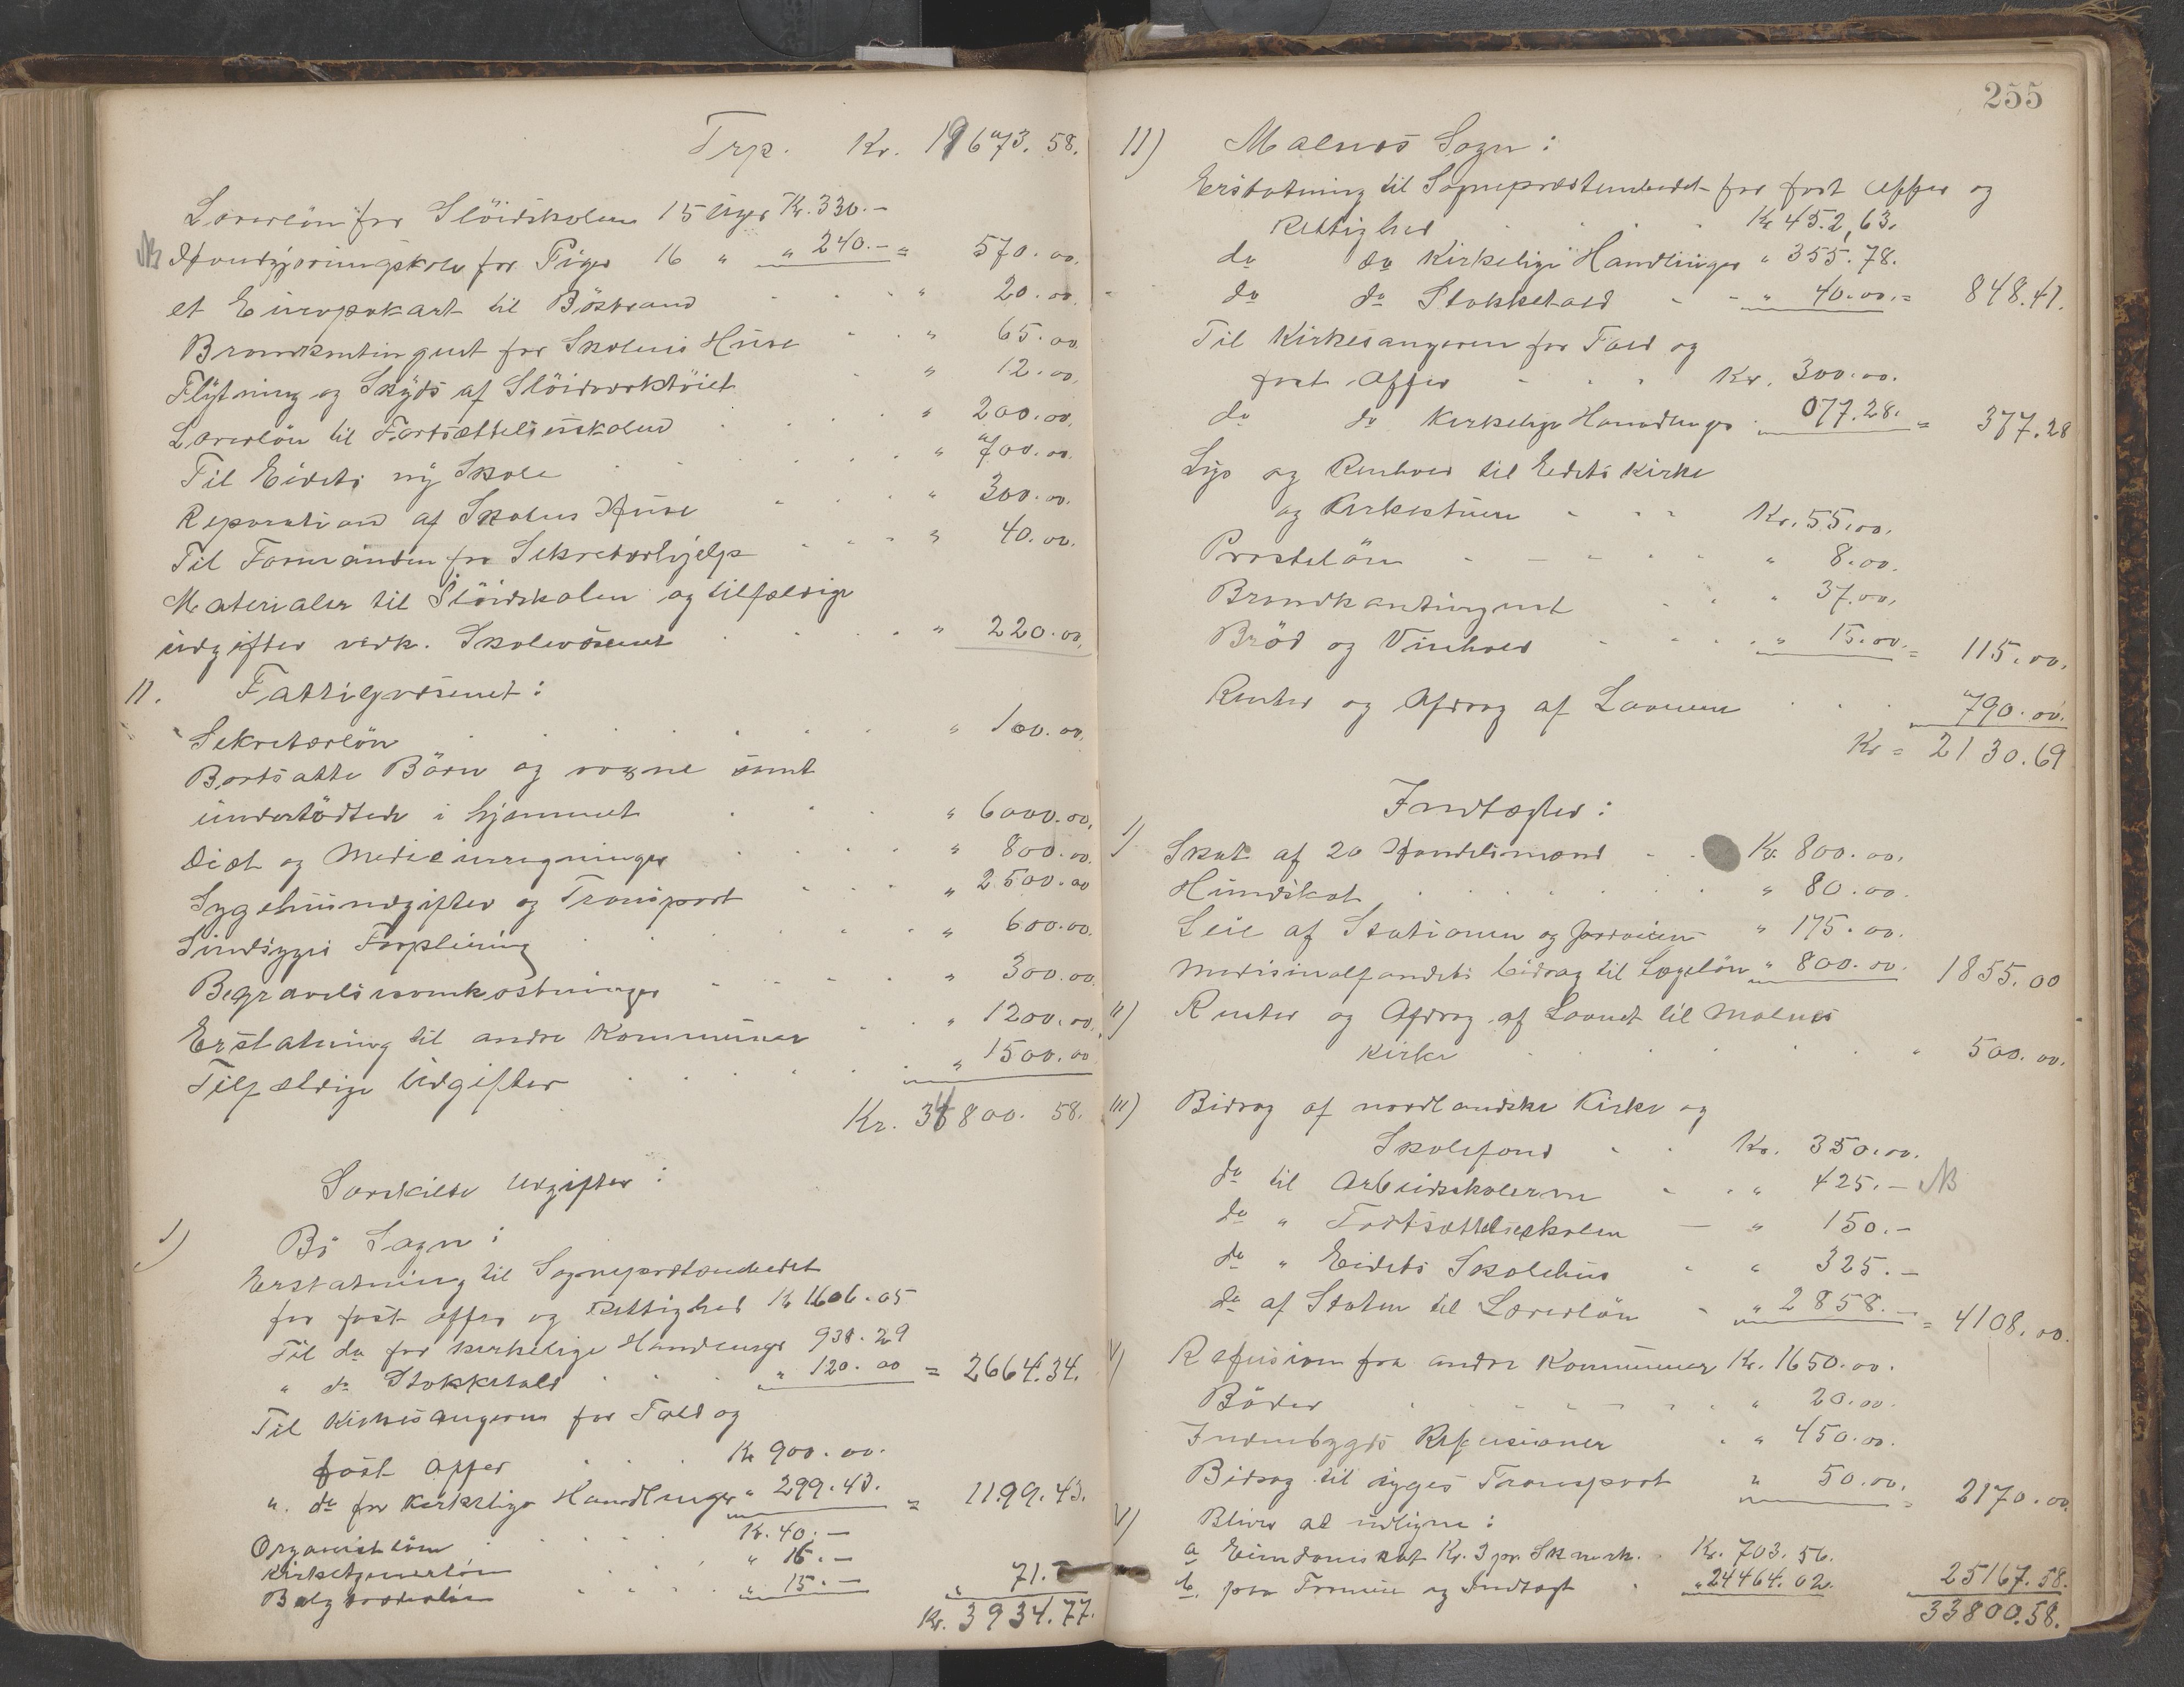 Trp. Kr. 19673.58.
Lærerløn for Slöidskolen 15 Uger Kr. 330.-
NB Haandgjerningskole for Piger 16 " " 240.- = 570.00.
et Europakart til Böstrand . . . " 20.00.
Brandkontingent for Skolens Huse . . " 65.00
Flytning og Skyds af Slöidverktöiet . " 12.00.
Lærerlön til Fortsættelsesskolen . . . " 200.00.
Til Eidets ny Skole . . . . " 700.00.
Reparation af Skolens Huse . . . " 300.00.
Til Formanden for Sekretærhjelp . . . " 40.00.
Materialer til Slöidskolen og tilfældige
udgifter vedk. Skolevæsenet . . . " 220.00.
II. Fattigvæsenet:
Sekretærlön . . . . . . " 100.00.
Bortsatte Börn og voxne samt
understödtede i hjemmet . . . " 6000.00.
Diæt og Medicinregninger . . . . " 800.00.
Sygehusudgifter og Transport . . . " 2500.00
Sindsyges Forpleining . . . . . " 600.00.
Begravelsesomkostninger . . . . " 300.00.
Erstatning til andre Kommuner . . " 1200.00.
Tilfældige Udgifter . . . . . " 1500.00
Kr. 34800.58.
Særskilte Udgifter:
I) Bö Sogn:
Erstatning til Sogneprestembedet
for fast offer og Rettighed Kr 1606.05
Til do for kirkelige Handlinger 938.29
" do Stokketold . . . " 120.00 = 2664.34.
Til Kirkesangeren for Told og
fast Offer . . . Kr 900.00.
" do for Kirkelige Handlinger " 299.43. = 1199.43.
Organistlön . . . . Kr. 40.-
Kirketjenerlön . . . . " 16.-
Belgtræderlön . . . . " 15.- " 71.-
Kr. 3934.77.
255
II) Malnes Sogn:
Erstatning til Sogneprestembedet for fast Offer og
Rettighed . . . Kr 452,63.
do do Kirkelige Handlinger " 355.78.
do do Stokketold - - " 40.00. = 848.41.
Til Kirkesangeren for Told og
fast Offer - . . Kr. 300.00.
do do Kirkelige Handlinger . 077.28. = 377.28
Lys og Renhold til Eidets Kirke
og Kirkestuen - - - Kr. 55.00.
Prosteløn - - - - - " 8.00.
Brandkontingent . . " 37.00.
Bröd og Vinhold - . . . " 15.00. = 115.00.
Renter og Afdrag af Laanene . . . 790.00.
Kr = 2130.69
Indtægter:
I) Skat af 20 Handelsmænd - . Kr. 800.00.
Hundskat . . . . . . " 80.00.
Leie af Stationen og Jordveien " 175.00.
Medisinalfondets bidrag til Lægeløn " 800.00. 1855.00
II) Renter og Afdrag af Laanet til Malnes
Kirke . . . . . . " 500.00.
III) Bidrag af nordlandske Kirke og
Skolefond . . Kr. 350.00.
do til Arbeidsskolerne - . " 425.- NB
do " Fortsættelsesskolen - " 150.-
do " Eidets Skolehus - " 325.-
do af Staten til Lærerlön - " 2858.- = 4108.00.
V) Refusion fra andre Kommuner Kr. 1650.00.
Böder . . . . . . " 20.00.
Indenbygds Refusioner . " 450.00.
Bidrag til syges Transport " 50.00. = 2170.00.
V) Bliver at udligne:
a Eiendomsskat Kr. 3 pr. Skmrk. . Kr. 703.56.
b. paa Formue og Indtægt . " 24464.02. 25167.58.
33800.58.